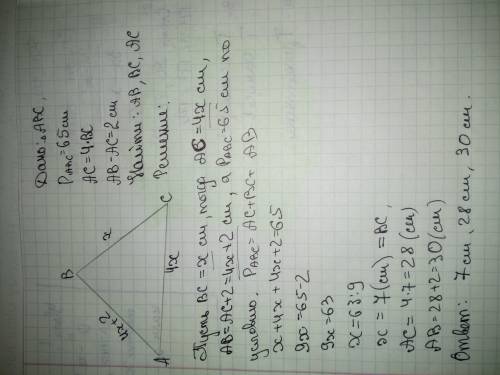 Дано: △ABC,
P△ABC=65 см
AC=4·BC
AB-AC=2 см
Найти: AB, BC, AC
Решение:
B
x
4x+2
A
4x
C
Пусть BC=x см, тогда AC=4x см,
AB=AC+2=4x+2 см, а PABC=65 см по
условию. PABC=AC+BC+AB
x+4x+4x+2=65
9x=65-2
9x=63
x=63:9
x=7(см)=BC,
AC=4·7=28(см)
AB=28+2=30(см)
Ответ: 7 см, 28 см, 30 см.